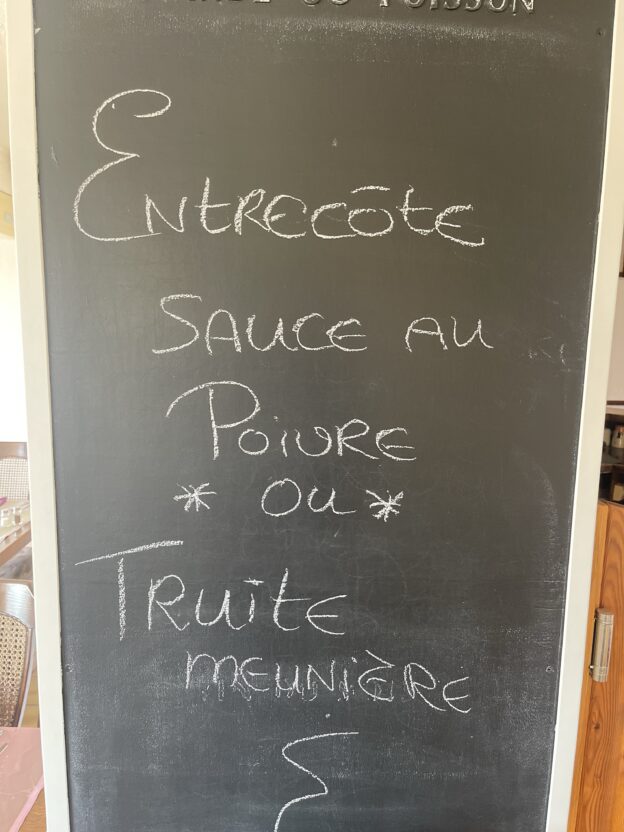 VIANDE OU POISSON
ENTRECÔTE
SAUCE AU
POIVRE
* OU *
TRUITE
MEUNIÈRE